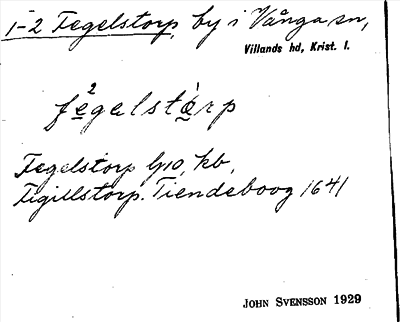 1-2 Tegelstorp, by i Vånga sn,
Villands hd, Krist. l.
Tegelstorp 1710, kb,
Tigillstorp. Tiendeboog 1641
JOHN SVENSSON 1929